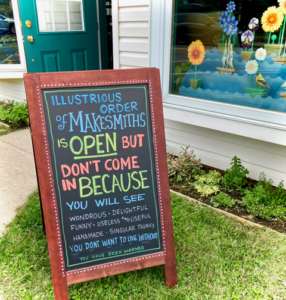 ILLUSTRIOUS
ORDER
of MAKESMITHS
is OPEN BUT
DON'T COME
IN BECAUSE
YOU WILL SEE
WONDROUS • DELIGHTFUL
FUNNY • USELESS & USEFUL
HANDMADE • SINGULAR THINGS
YOU DON'T WANT TO LIVE WITHOUT
YOU HAVE BEEN WARNED